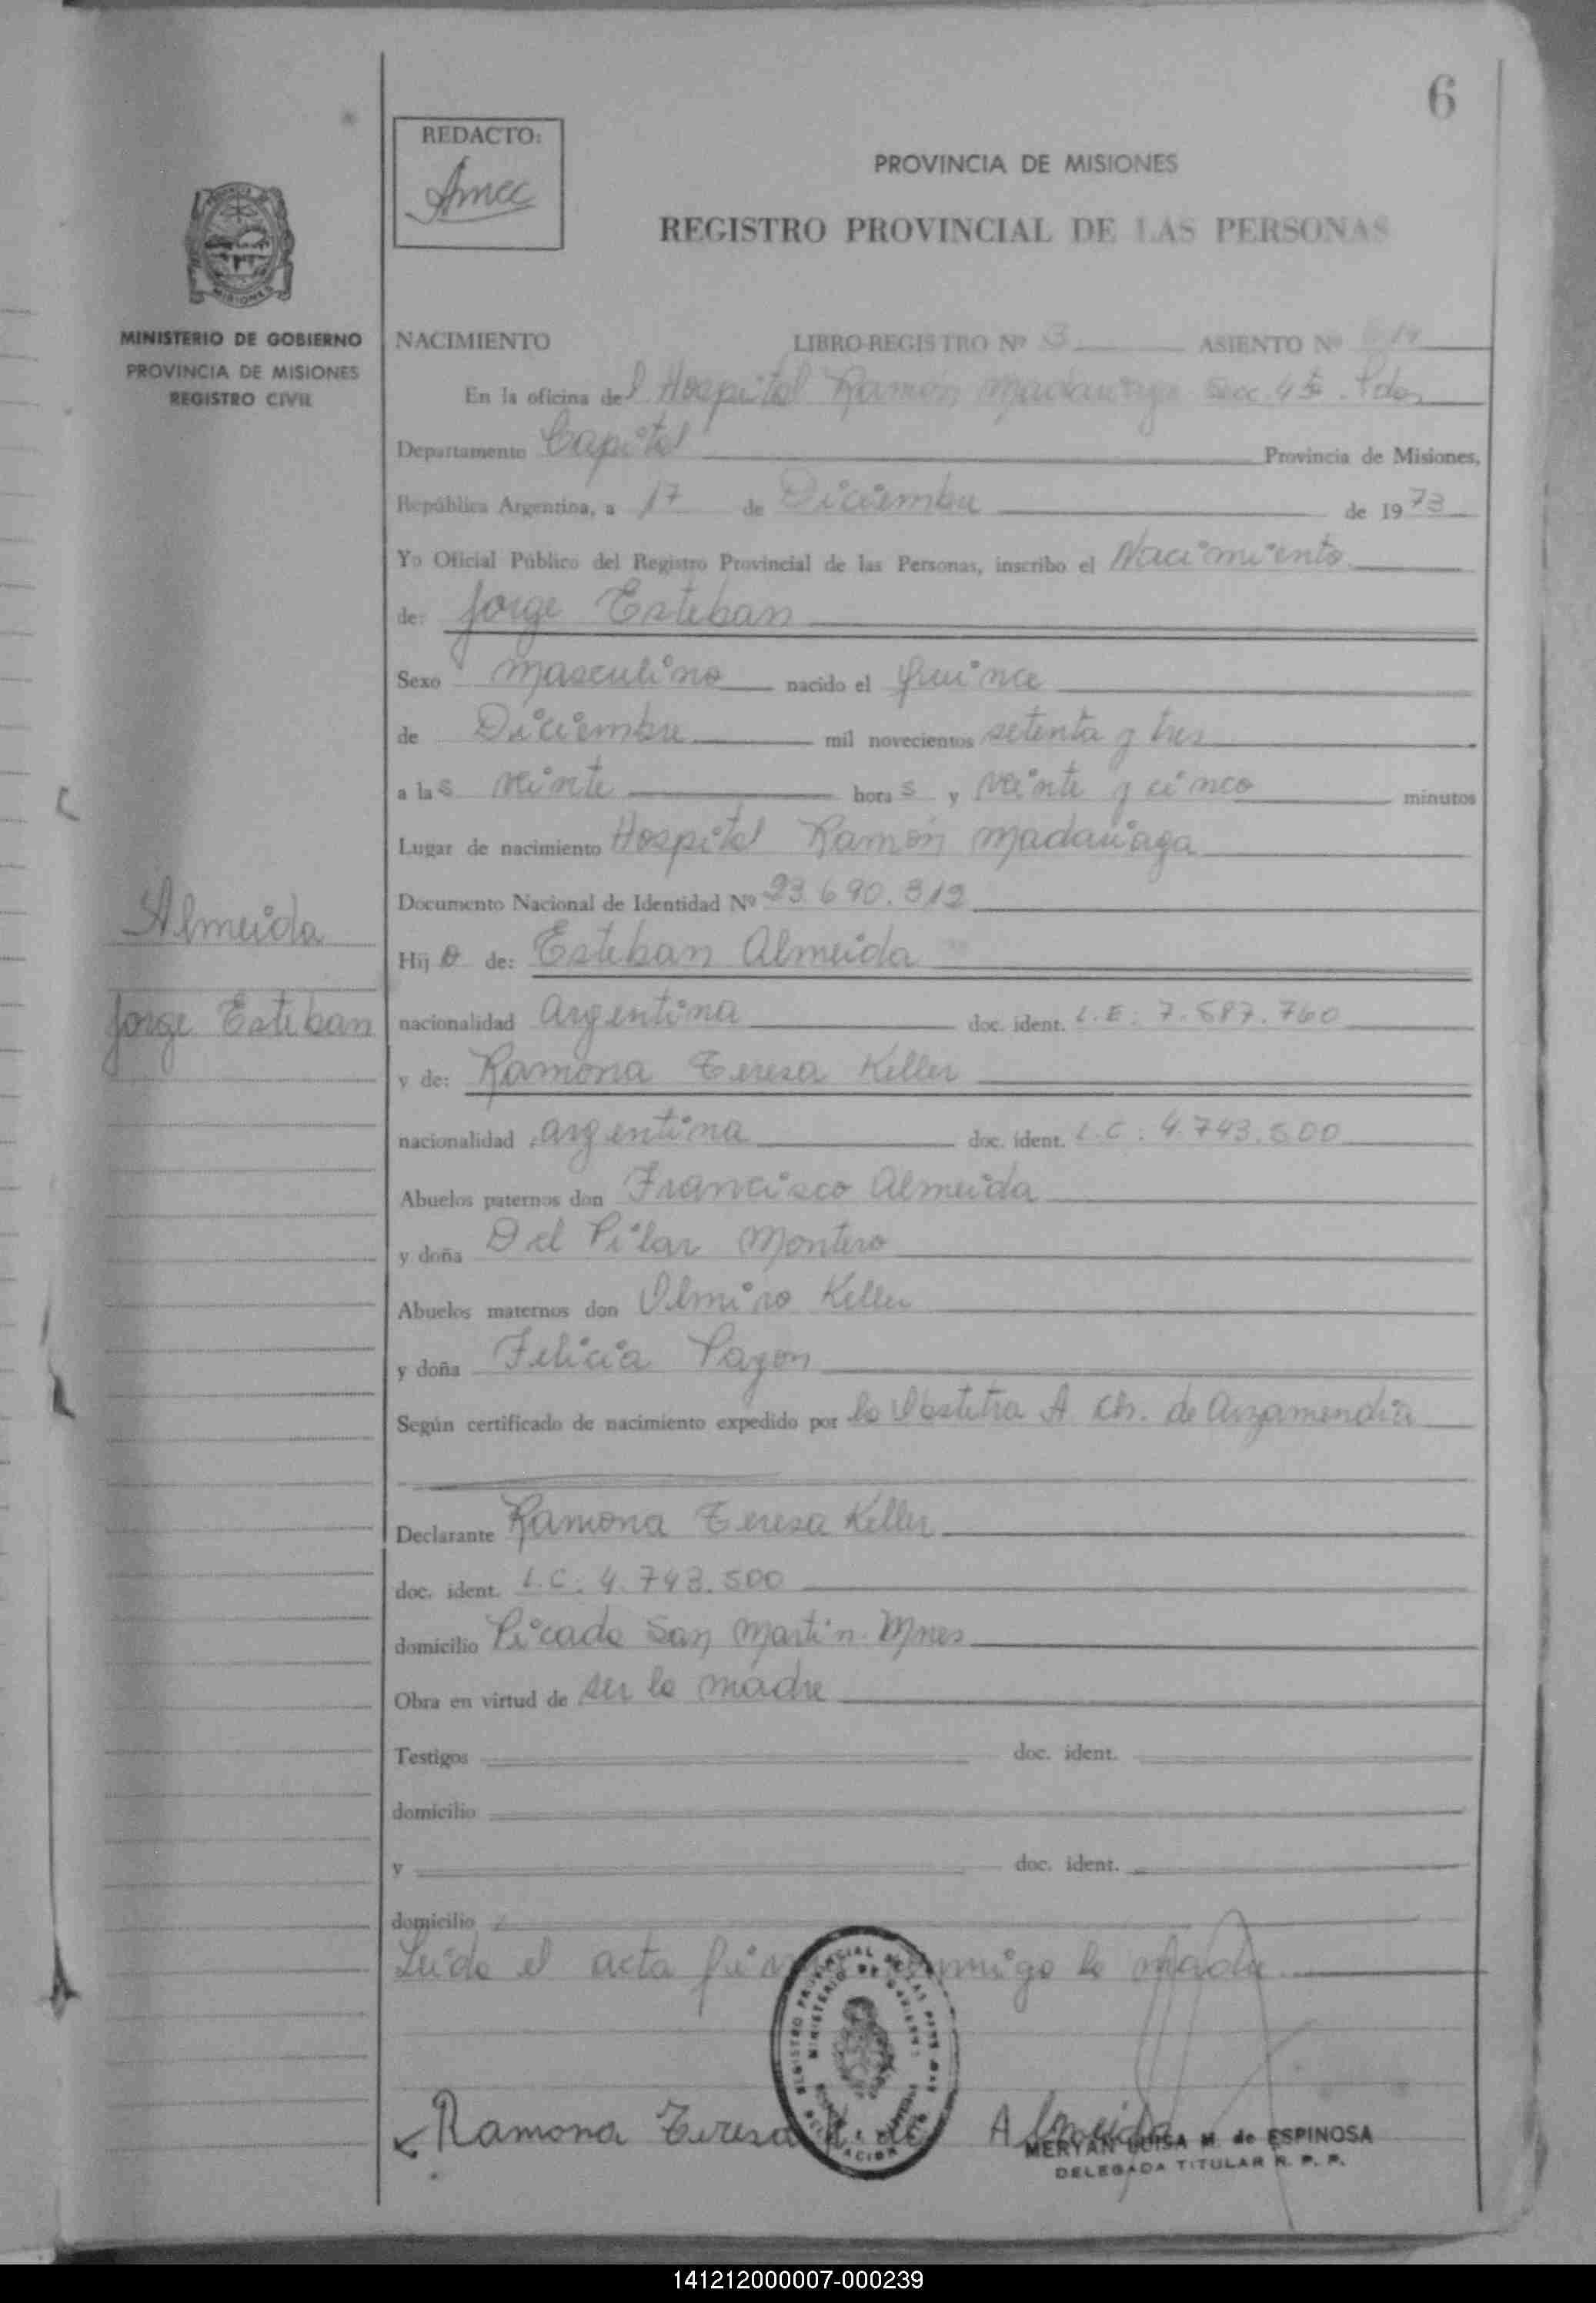 6
REDACTO:
PROVINCIA DE MISIONES
REGISTRO PROVINCIAL DE LAS PERSONAS
MISIONES
MINISTERIO DE GOBIERNO
PROVINCIA DE MISIONES
REGISTRO CIVIL
NACIMIENTO LIBRO-REGISTRO Nº 3 ASIENTO Nº
En la oficina del Hospital Ramón Madariaga Secc. 4ta. Pdas
Departamento Capital Provincia de Misiones,
República Argentina, a 17 de Diciembre de 1973
Yo Oficial Público del Registro Provincial de las Personas, inscribo el Nacimiento
de: Jorge Esteban
Sexo masculino nacido el quince
de Diciembre mil novecientos setenta y tres
a las veinte horas y veinte y cinco minutos
Lugar de nacimiento Hospital Ramón Madariaga
Documento Nacional de Identidad Nº 23.690.312
Almeida
Jorge Esteban
Hijo de: Esteban Almeida
nacionalidad Argentina doc. ident. L.E: 7.587.760
y de: Ramona Teresa Keller
nacionalidad argentina doc. ident. L.C: 4.743.500
Abuelos paternos don Francisco Almeida
y doña Del Pilar Montero
Abuelos maternos don Olmiro Keller
y doña Felicia Pagon
Según certificado de nacimiento expedido por la Obstetra A Ch. de Arzamendia
Declarante Ramona Teresa Keller
doc. ident. L.C: 4.743.500
domicilio Picada San Martin. Mnes
Obra en virtud de ser la madre
Testigos doc. ident.
domicilio
y doc. ident.
domicilio
Leida el acta firma conmigo la madre
Ramona Teresa K de Almeida
MERYAN LUISA M. de ESPINOSA
DELEGADA TITULAR R. P. P.
141212000007-000239